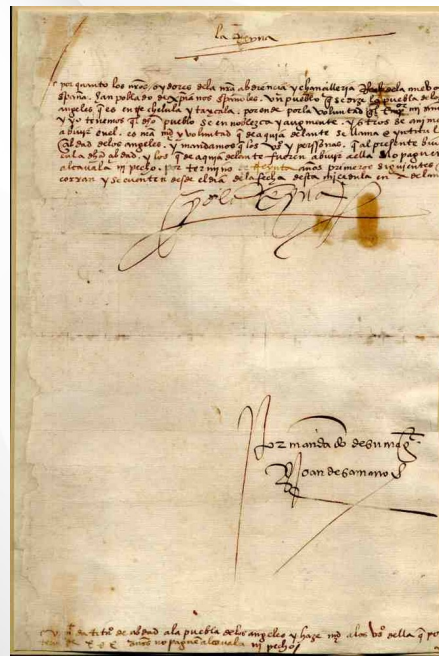 la Reyna
por quanto los nros oydores dela nra abdiencia y chancilleria Real dela nueva
españa. han poblado de xpianos españoles. vn pueblo q se dize la puebla delos
angeles q es entre chelula y taxcala. por ende por la voluntad q
y yo tenemos q el dho pueblo se ennoblezca y augmente. y otros se animen
a biuyr en el. es nra md y voluntad q de aqui adelante se llame e yntitule
cibdad delos angeles. y mandamos q los vºs y personas. q al presente biuen
en la dha cibdad. y los q de aqui adelante fueren a biuyr a ella no paguen
alcauala ni pecho. por termino de treynta años primeros siguientes q
corran y se cuenten desde el dia dela fecha desta mi cedula en adelante
yo la Reyna
Por mandado de su mt
Joan de samano
da titº de cibdad ala puebla delos angeles y haze md alos vºs della q por
años no paguen alcauala ni pecho